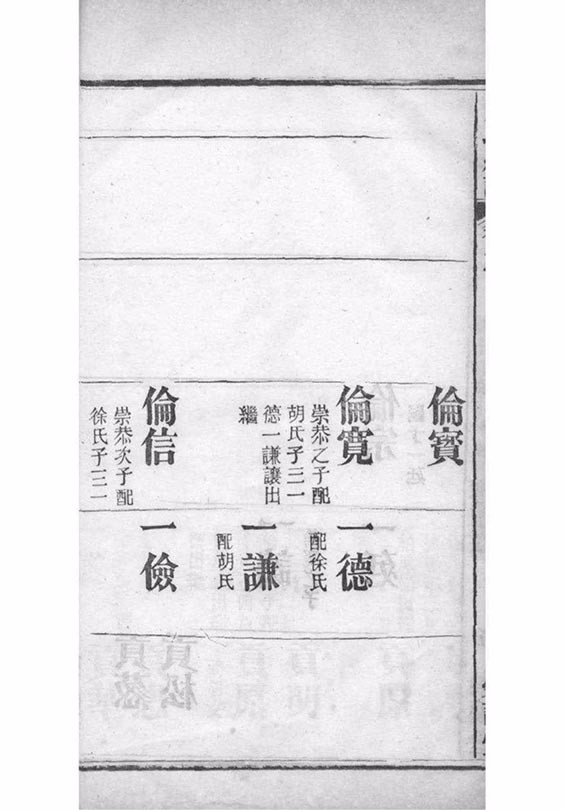 倫賓
倫寬
崇恭之子配
胡氏子三一
德一謙讓出
繼
倫信
崇恭次子配
徐氏子三一
一德
配徐氏
一謙
配胡氏
一儉